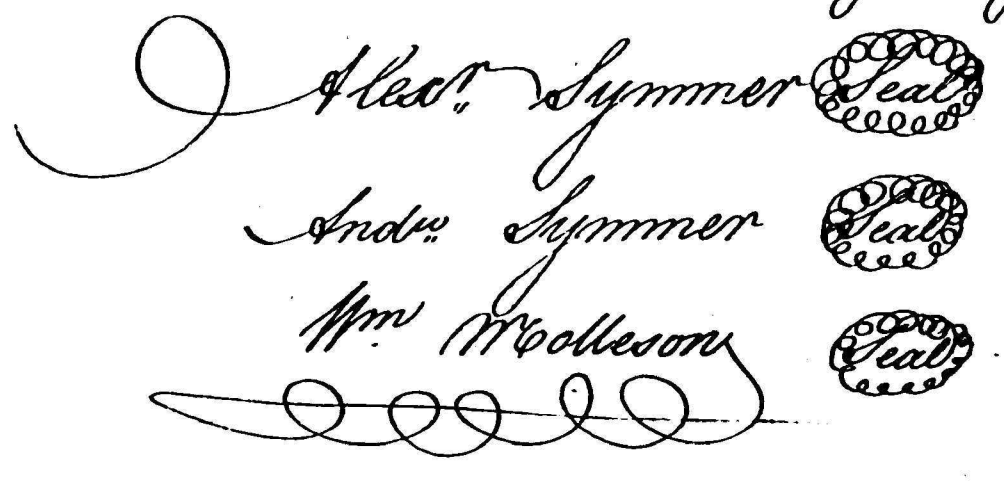 Alexr. Symmer Seal
Andw. Symmer Seal
Wm. Molleson Seal